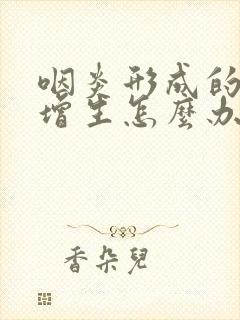 咽炎形成的
增生怎麼办
香朵兒